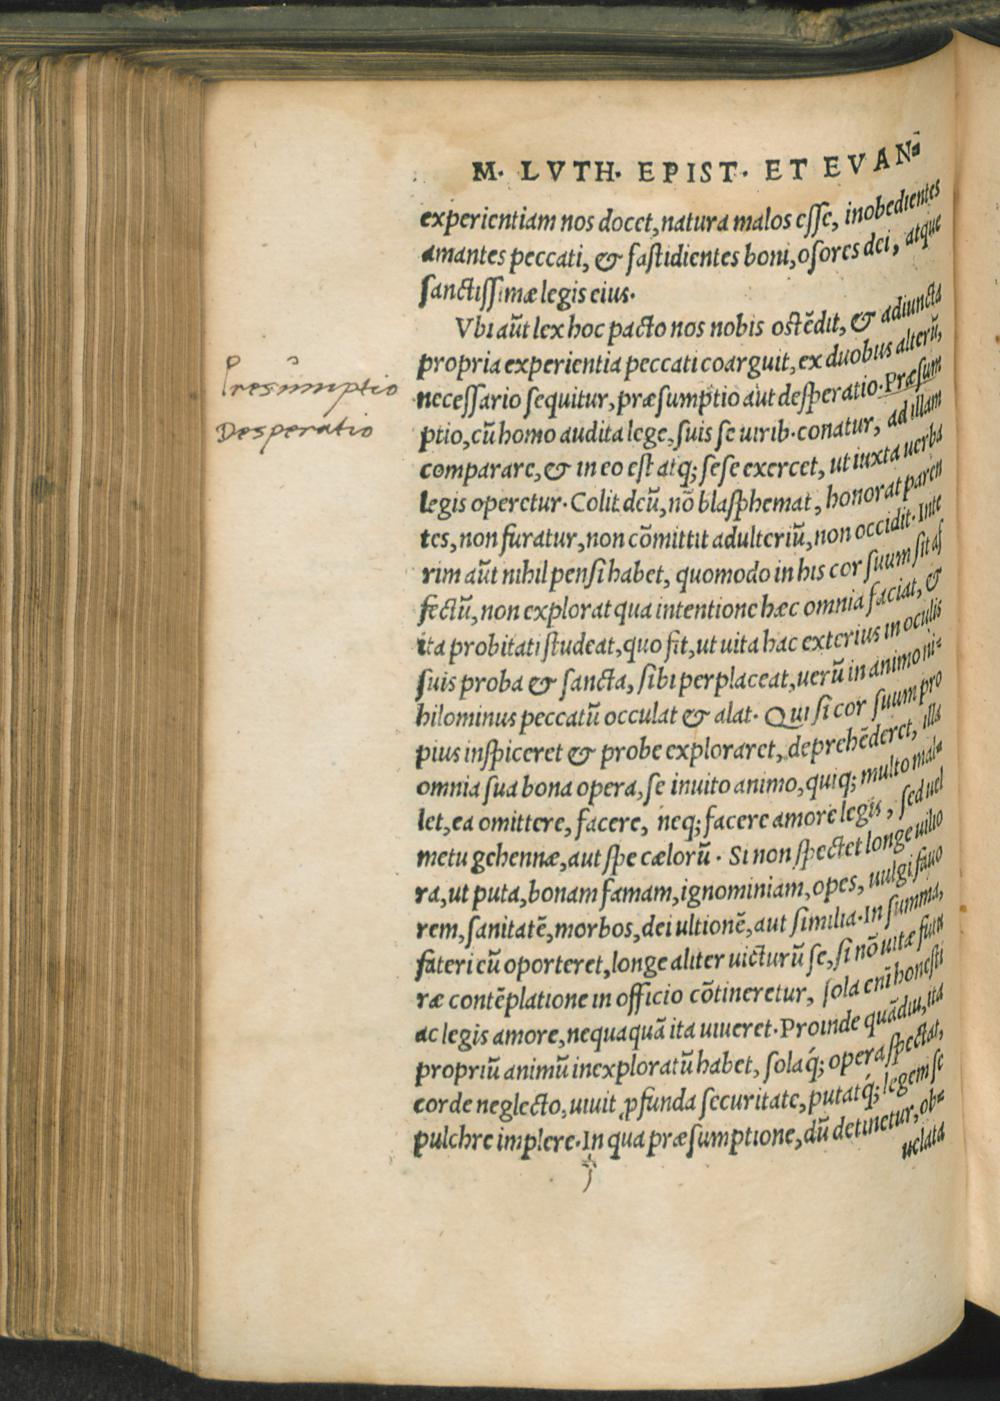 M. LVTH. EPIST. ET EVAN⸗
experientiam nos docet, natura malos eſſe, inobedientes
amantes peccati, & faſtidientes boni, oſores dei, atque
ſanctiſſimæ legis eius.
Vbi aūt lex hoc pacto nos nobis oſtēdit, & adiuncta
propria experientia peccati coarguit, ex duobus alterū,
neceſſario ſequitur, præſumptio aut deſperatio. Præſum
ptio, cū homo audita lege, ſuis ſe uirib. conatur, ad illam
comparare, & in eo eſt atq; ſeſe exercet, ut iuxta uerba
legis operetur. Colit deū, nō blaſphemat, honorat paren
tes, non furatur, non cōmittit adulteriū, non occidit. Inte
rim aūt nihil penſi habet, quomodo in his cor ſuum ſit af
fectū, non explorat qua intentione hæc omnia faciat, &
ita probitati ſtudeat, quo fit, ut uita hac exterius in oculis
ſuis proba & ſancta, ſibi perplaceat, uerū in animo ni⸗
hilominus peccatū occulat & alat. Qui ſi cor ſuum pro
pius inſpiceret & probe exploraret, deprehēderet, illa
omnia ſua bona opera, ſe inuito animo, quiq; multo mal⸗
let, ea omittere, facere, neq; facere amore legis, ſed uel
metu gehennæ, aut ſpe cælorū. Si non ſpectet longe uilio
ra, ut puta, bonam famam, ignominiam, opes, uulgi fauo
rem, ſanitatē, morbos, dei ultionē, aut ſimilia. In ſumma,
fateri eū oporteret, longe aliter uicturū ſe, ſi nō uitæ futu
ræ contēplatione in officio cōtineretur, ſola eni̅ honeſti
ac legis amore, nequaquā ita uiueret. Proinde quādiu, ita
propriū animū inexploratū habet, ſola q́; opera ſpectat,
corde neglecto, uiuit ꝓfunda ſecuritate, putat q́; legem ſe
pulchre implere. In qua præſumptione, dū detinetur, ob⸗
uelata
Presumptio
Desperatio